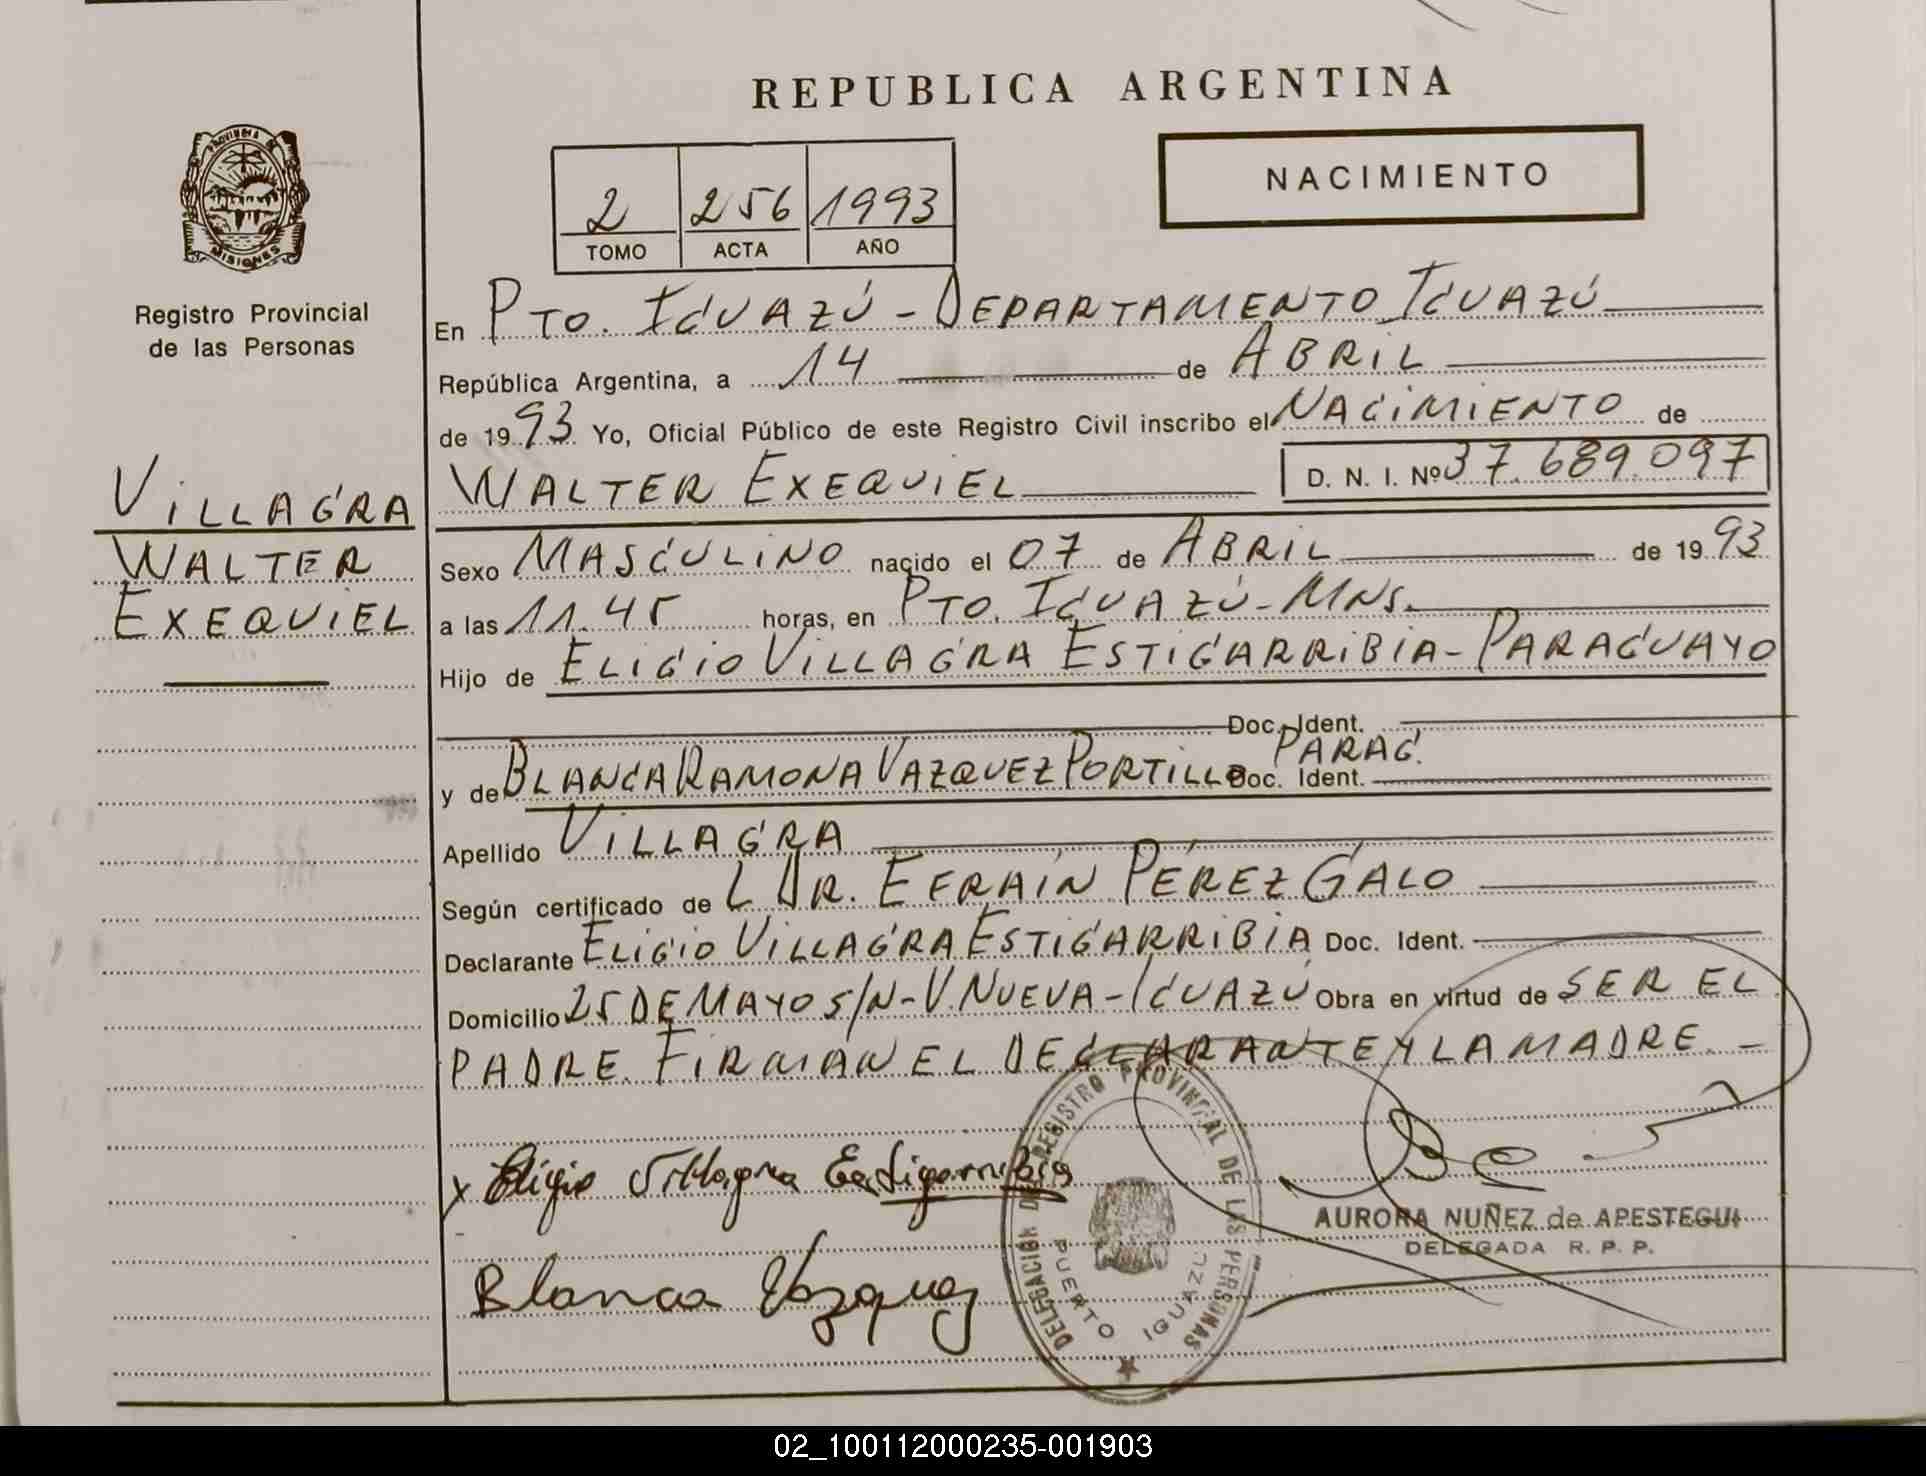 REPUBLICA ARGENTINA
PROVINCIA DE
MISIONES
NACIMIENTO
2 256 1993
TOMO ACTA AÑO
Registro Provincial
de las Personas
En PTO. IGUAZÚ - DEPARTAMENTO IGUAZÚ
República Argentina, a 14 de ABRIL
de 1993 Yo, Oficial Público de este Registro Civil inscribo el NACIMIENTO de
WALTER EXEQUIEL D. N. I. Nº 37.689.097
VILLAGRA
WALTER
EXEQUIEL
Sexo MASCULINO nacido el 07 de ABRIL de 1993
a las 11.45 horas, en PTO. IGUAZÚ - MNS.
Hijo de ELIGIO VILLAGRA ESTIGARRIBIA - PARAGUAYO
Doc. Ident.
PARAG.
y de BLANCA RAMONA VAZQUEZ PORTILLO Doc. Ident.
Apellido VILLAGRA
Según certificado de L DR. EFRAÍN PÉREZ GALO
Declarante ELIGIO VILLAGRA ESTIGARRIBIA Doc. Ident.
Domicilio 25 DE MAYO S/N - V. NUEVA - IGUAZÚ Obra en virtud de SER EL
PADRE. FIRMAN EL DECLARANTE Y LA MADRE. -
x Eligio Villagra Estigarribia
Blanca Vazquez
DELEGACIÓN DEL REGISTRO PROVINCIAL DE LAS PERSONAS
PUERTO IGUAZU
AURORA NUÑEZ de APESTEGUI
DELEGADA R. P. P.
02_100112000235-001903